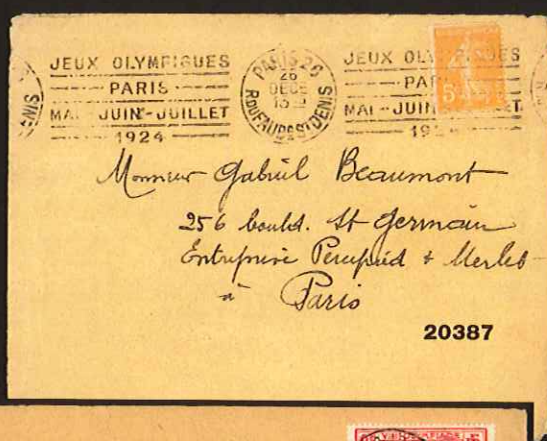 JEUX OLYMPIQUES
PARIS
MAI-JUIN-JUILLET
1924
PARIS 26
26
DECE
R. DU FAUB. ST DENIS
JEUX OL
PAR
MAI-JUIN
192
Monsieur Gabriel Beaumont
256 bould. St Germain
Entreprise & Merlet
à Paris
20387